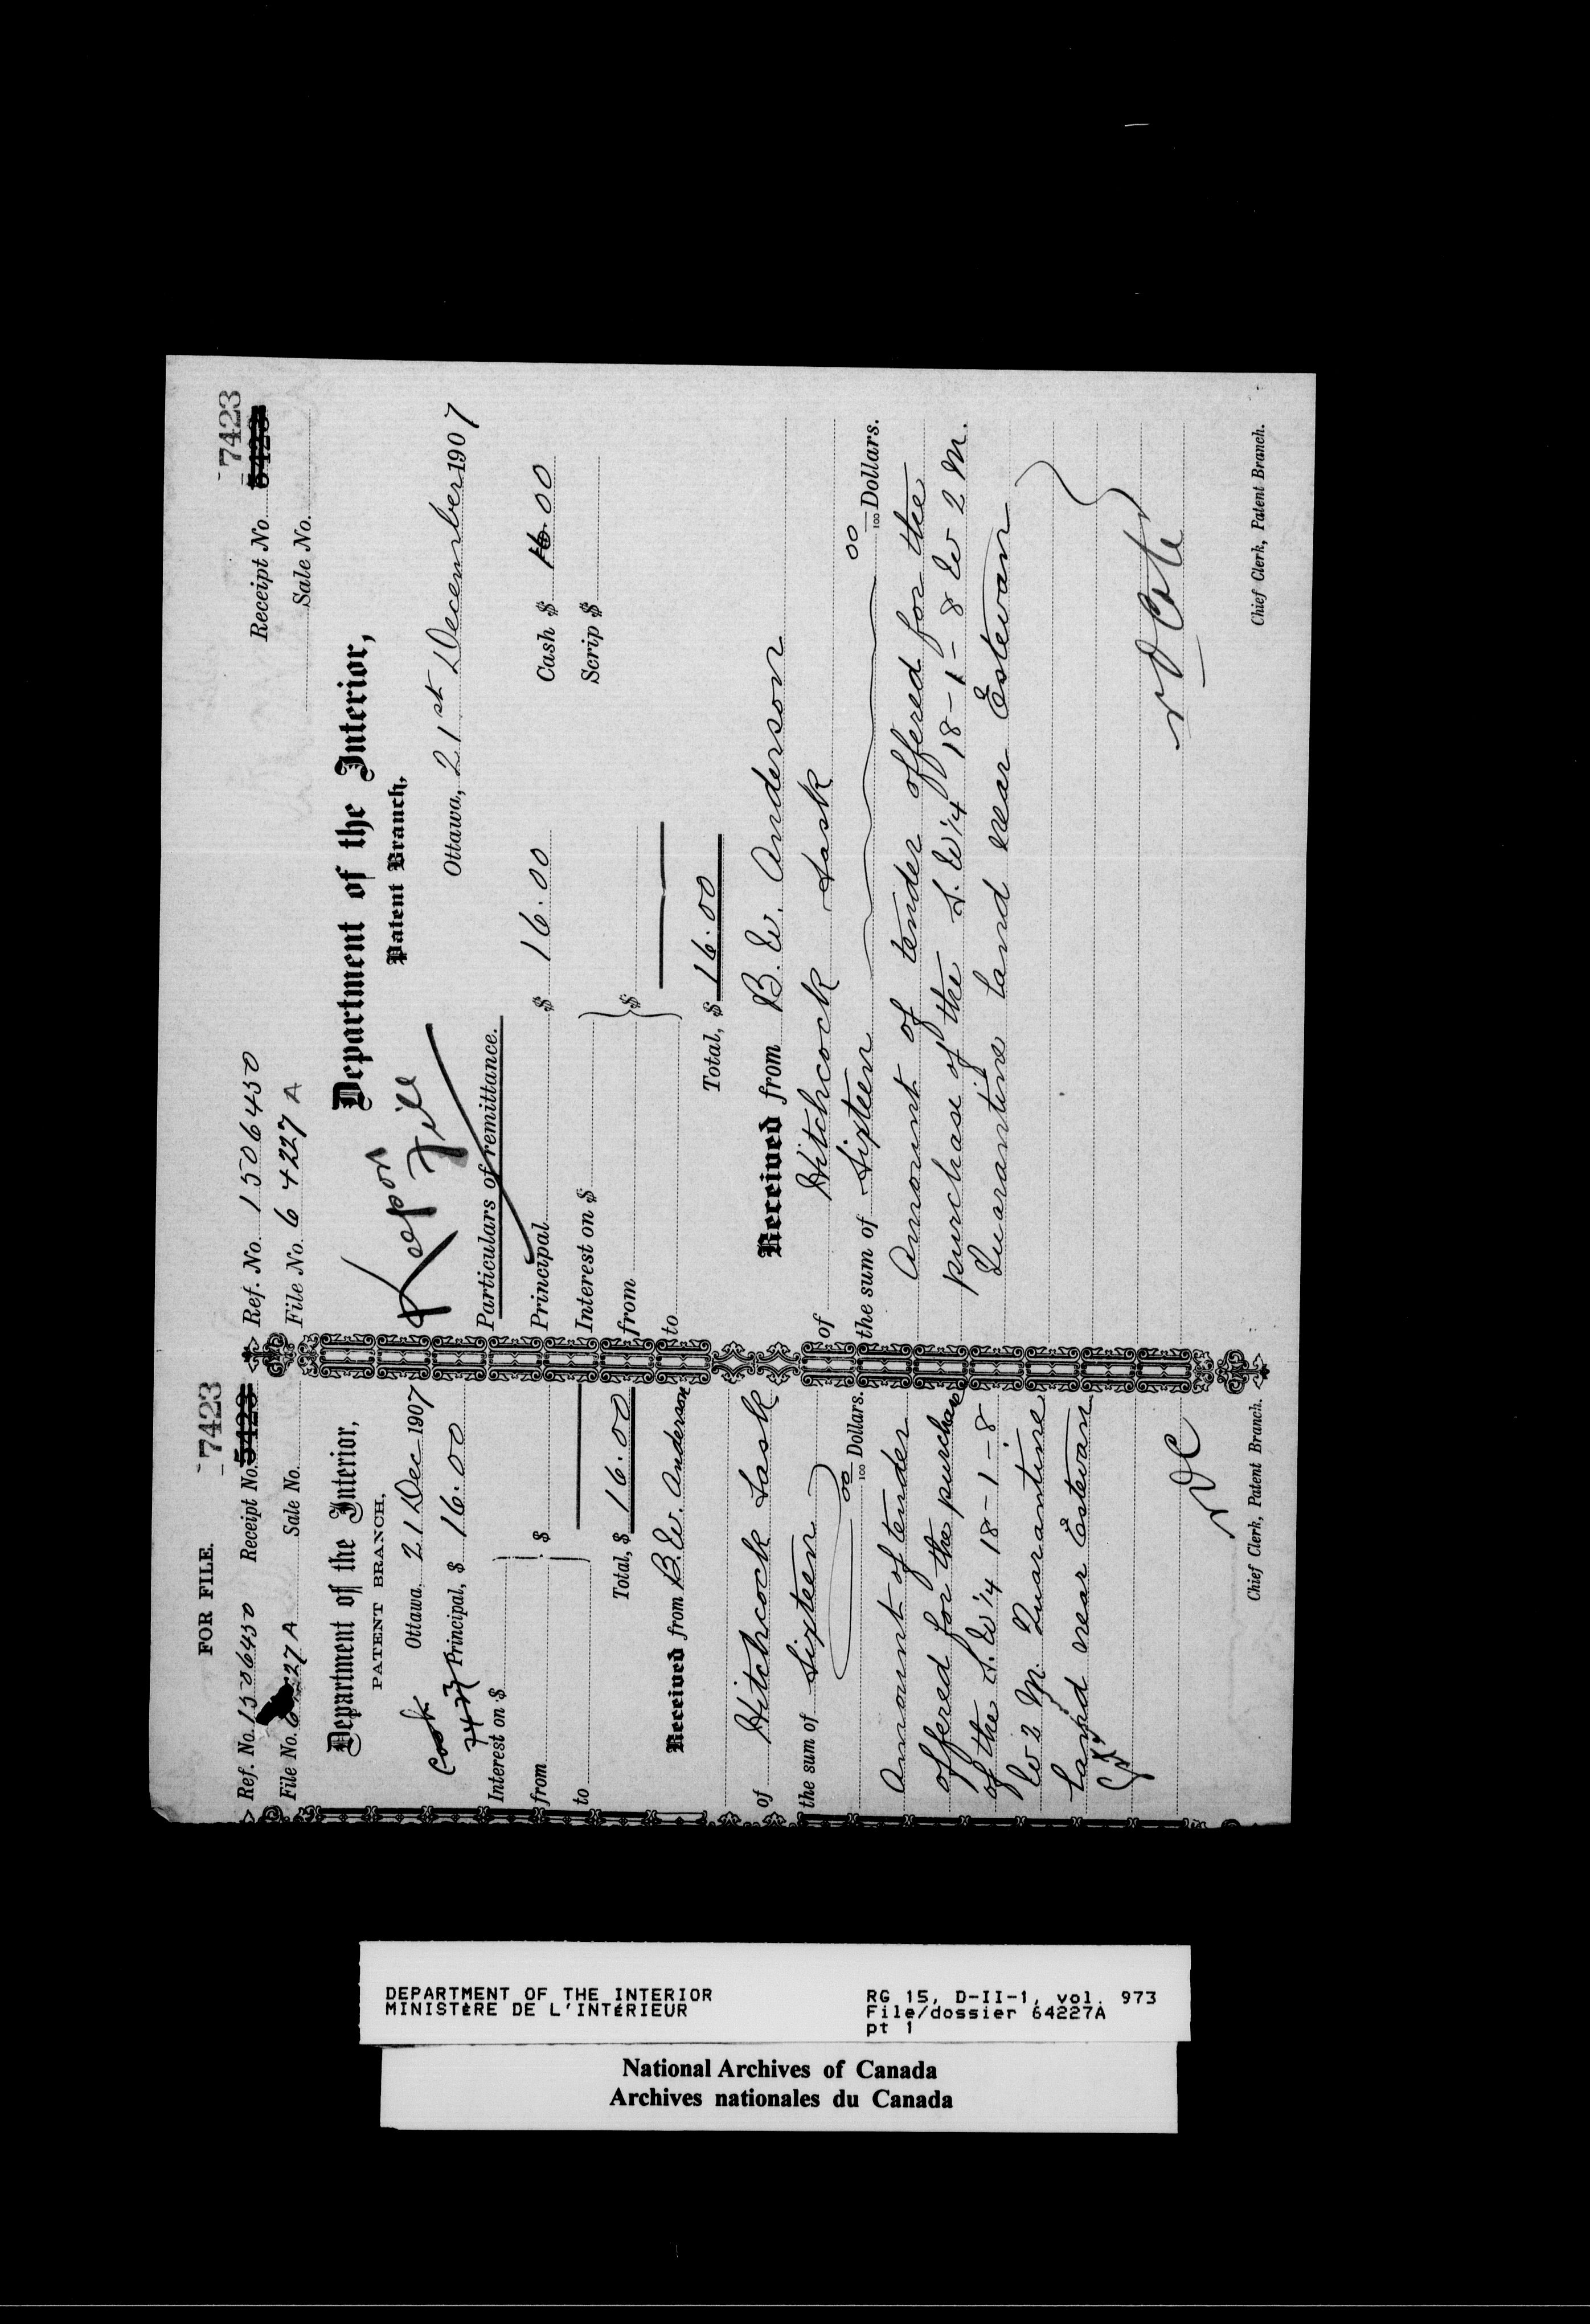 FOR FILE.
7423
Ref. No. 1506450 Receipt No. 5423
File No. 6 227 A Sale No.
Department of the Interior,
PATENT BRANCH,
Ottawa, 21 Dec 1907
Cash
7423 Principal, $ 16.00
Interest on $
from $
to
Total, $ 16.00
Received from B. W. Anderson
of Hitchcock Sask
the sum of Sixteen 00/100 Dollars.
Amount of tender
offered for the purchase
of the S. W 1/4 18-1-8
W 2 M. Quarantine
Land near Estevan
Chief Clerk, Patent Branch.
7423
Ref. No. 1506450 Receipt No. 5423
File No. 6 4227 A Sale No.
Department of the Interior,
Patent Branch,
Keep on
File
Ottawa, 21st December 1907
Particulars of remittance.
Principal $ 16.00 Cash $ 16.00
Interest on $ Scrip $
from $
to
Total, $ 16.00
Received from B. W. Anderson
of Hitchcock Sask
the sum of Sixteen 00/100 Dollars.
Amount of tender offered for the
purchase of the S. W 1/4 18-1-8 W 2 M.
Quarantine Land near Estevan
Chief Clerk, Patent Branch.
DEPARTMENT OF THE INTERIOR
MINISTÈRE DE L'INTÉRIEUR
RG 15, D-II-1, vol. 973
File/dossier 64227A
pt 1
National Archives of Canada
Archives nationales du Canada